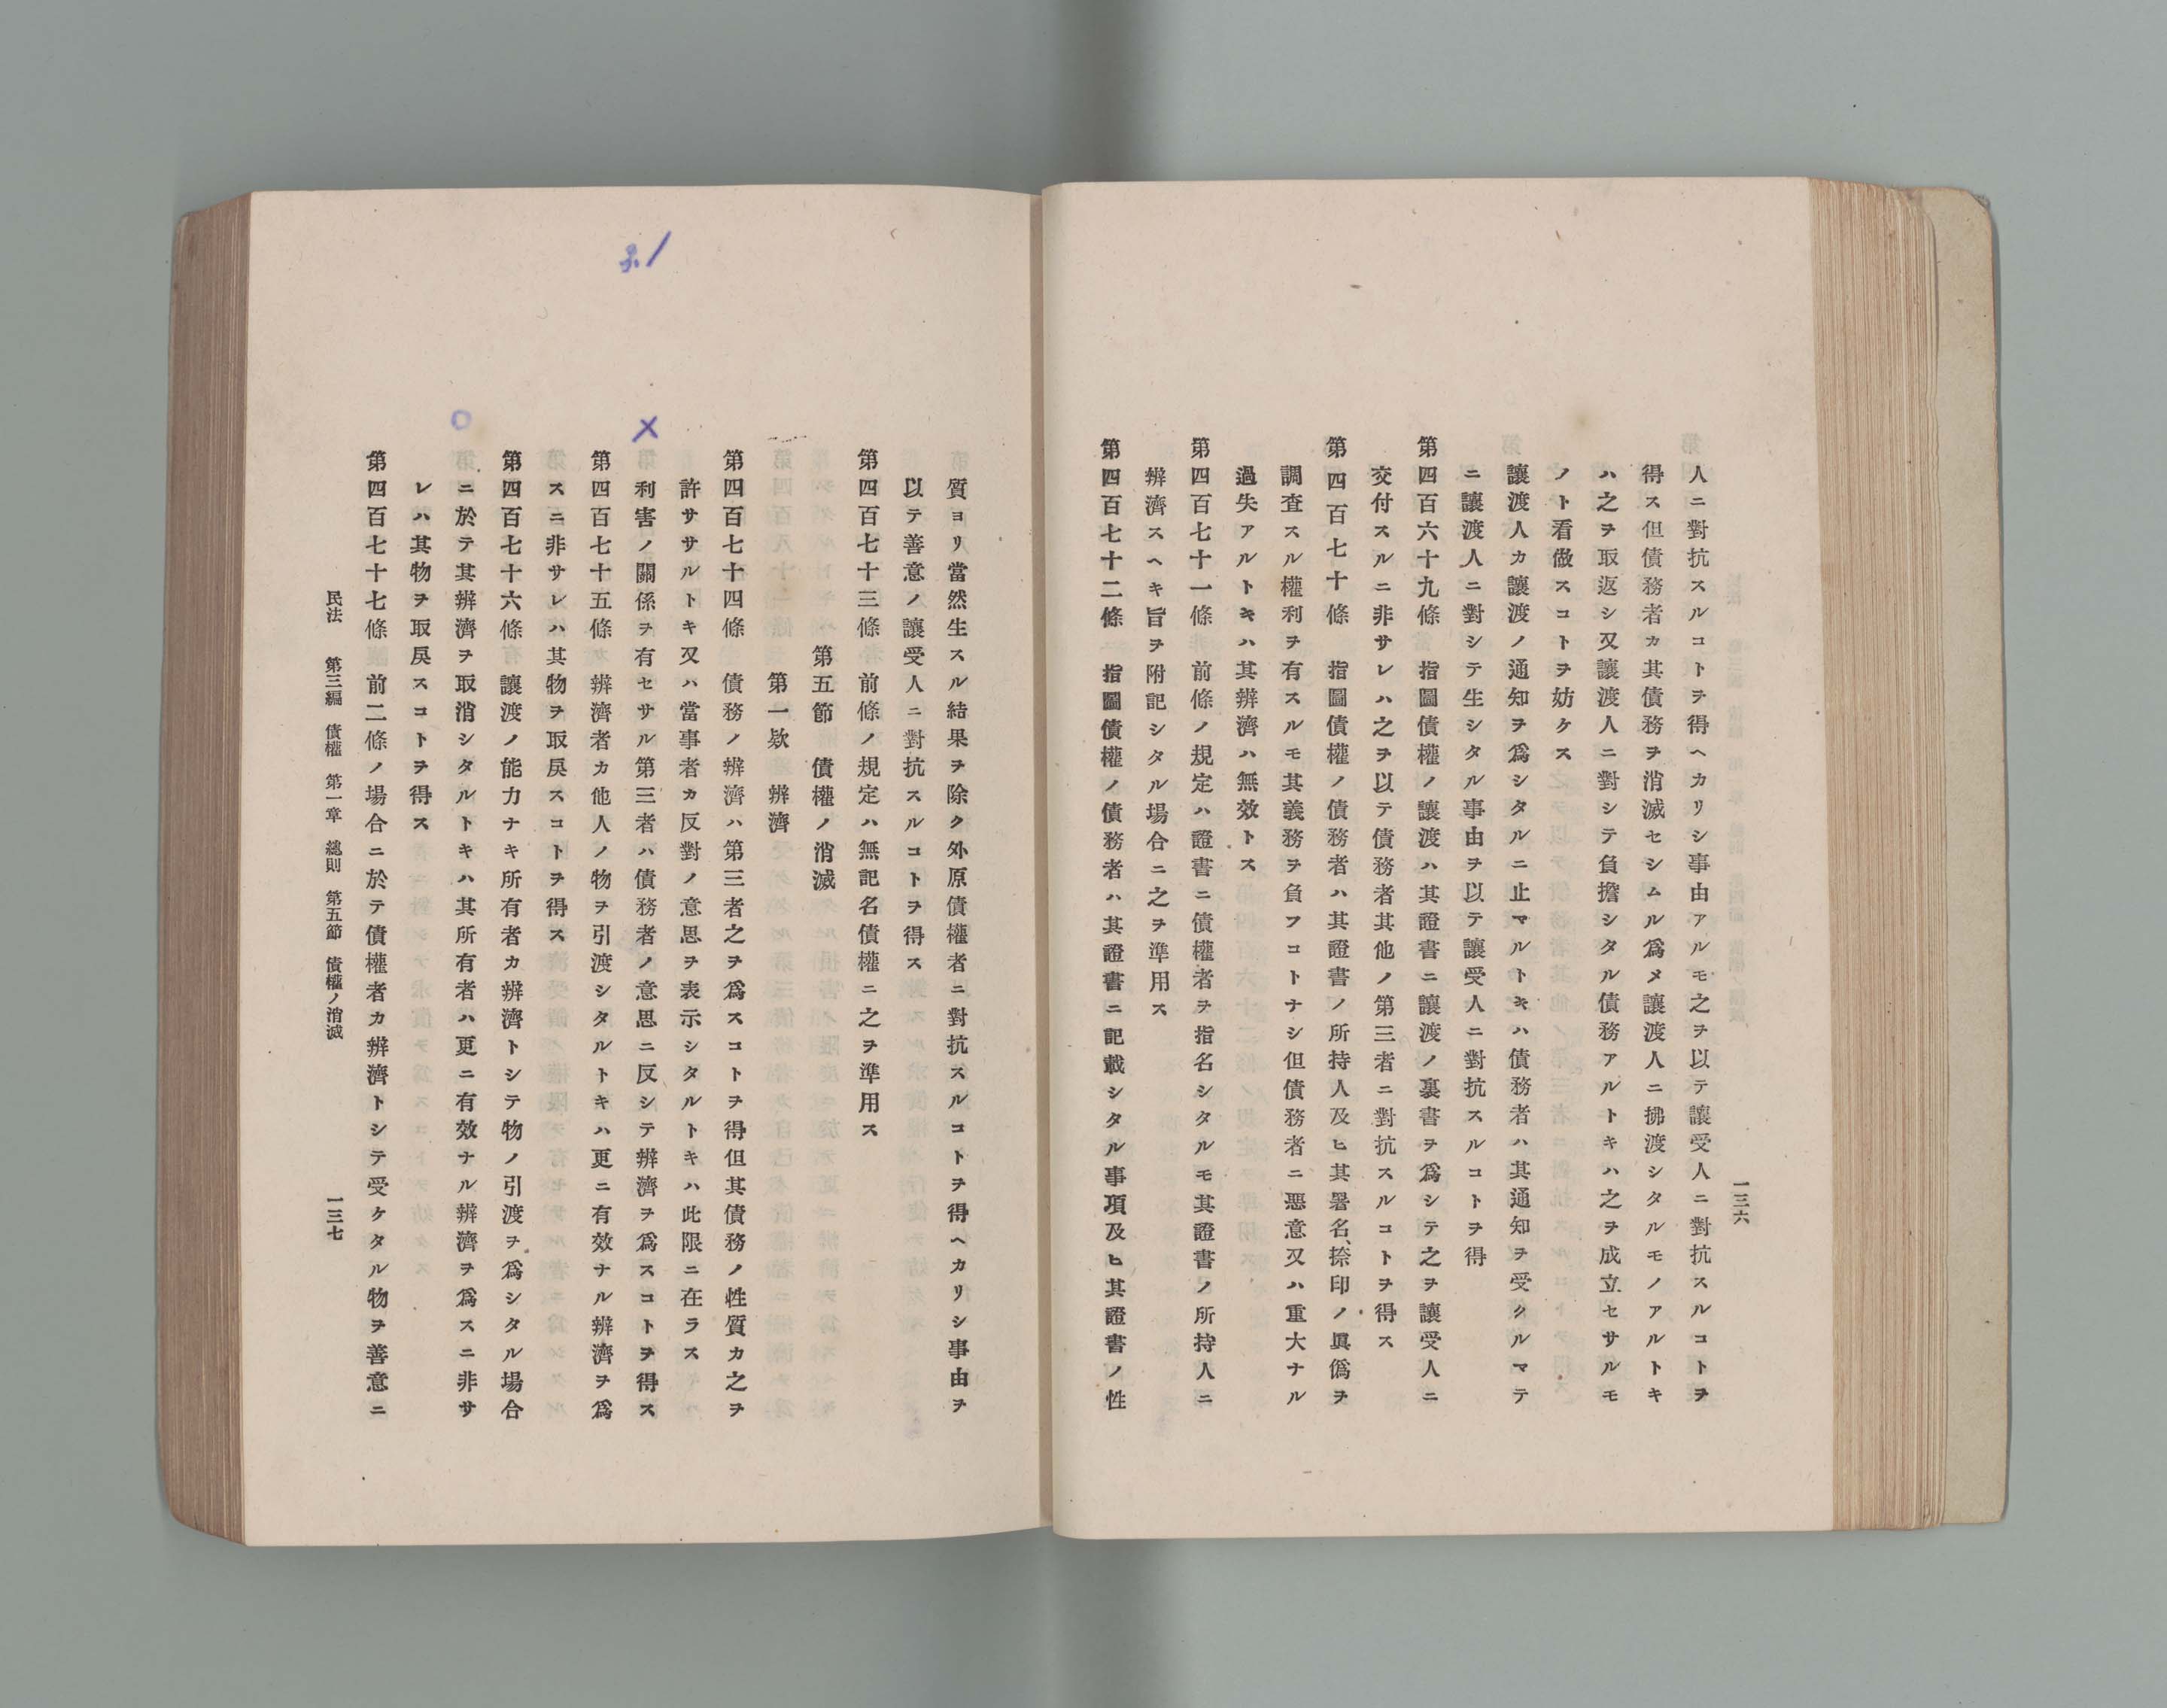 一三六
人ニ對抗スルコトヲ得ヘカリシ事由アルモ之ヲ以テ讓受人ニ對抗スルコトヲ
得ス但債務者カ其債務ヲ消滅セシムル爲メ讓渡人ニ拂渡シタルモノアルトキ
ハ之ヲ取返シ又讓渡人ニ對シテ負擔シタル債務アルトキハ之ヲ成立セサルモ
ノト看做スコトヲ妨ケス
讓渡人カ讓渡ノ通知ヲ爲シタルニ止マルトキハ債務者ハ其通知ヲ受クルマテ
ニ讓渡人ニ對シテ生シタル事由ヲ以テ讓受人ニ對抗スルコトヲ得
第四百六十九條 指圖債權ノ讓渡ハ其證書ニ讓渡ノ裏書ヲ爲シテ之ヲ讓受人ニ
交付スルニ非サレハ之ヲ以テ債務者其他ノ第三者ニ對抗スルコトヲ得ス
第四百七十條 指圖債權ノ債務者ハ其證書ノ所持人及ヒ其署名、捺印ノ眞僞ヲ
調査スル權利ヲ有スルモ其義務ヲ負フコトナシ但債務者ニ惡意又ハ重大ナル
過失アルトキハ其辨濟ハ無效トス
第四百七十一條 前條ノ規定ハ證書ニ債權者ヲ指名シタルモ其證書ノ所持人ニ
辨濟スヘキ旨ヲ附記シタル場合ニ之ヲ準用ス
第四百七十二條 指圖債權ノ債務者ハ其證書ニ記載シタル事項及ヒ其證書ノ性
質ヨリ當然生スル結果ヲ除ク外原債權者ニ對抗スルコトヲ得ヘカリシ事由ヲ
以テ善意ノ讓受人ニ對抗スルコトヲ得ス
第四百七十三條 前條ノ規定ハ無記名債權ニ之ヲ準用ス
第五節 債權ノ消滅
第一欵 辨濟
第四百七十四條 債務ノ辨濟ハ第三者之ヲ爲スコトヲ得但其債務ノ性質カ之ヲ
許サザルトキ又ハ當事者カ反對ノ意思ヲ表示シタルトキハ此限ニ在ラス
利害ノ關係ヲ有セサル第三者ハ債務者ノ意思ニ反シテ辨濟ヲ爲スコトヲ得ス
第四百七十五條 辨濟者カ他人ノ物ヲ引渡シタルトキハ更ニ有效ナル辨濟ヲ爲
スニ非サレハ其物ヲ取戾スコトヲ得ス
第四百七十六條 讓渡ノ能力ナキ所有者カ辨濟トシテ物ノ引渡ヲ爲シタル場合
ニ於テ其辨濟ヲ取消シタルトキハ其所有者ハ更ニ有效ナル辨濟ヲ爲スニ非サ
レハ其物ヲ取戾スコトヲ得ス
第四百七十七條 前二條ノ場合ニ於テ債權者カ辨濟トシテ受ケタル物ヲ善意ニ
民法 第三編 債權 第一章 總則 第五節 債權ノ消滅 一三七